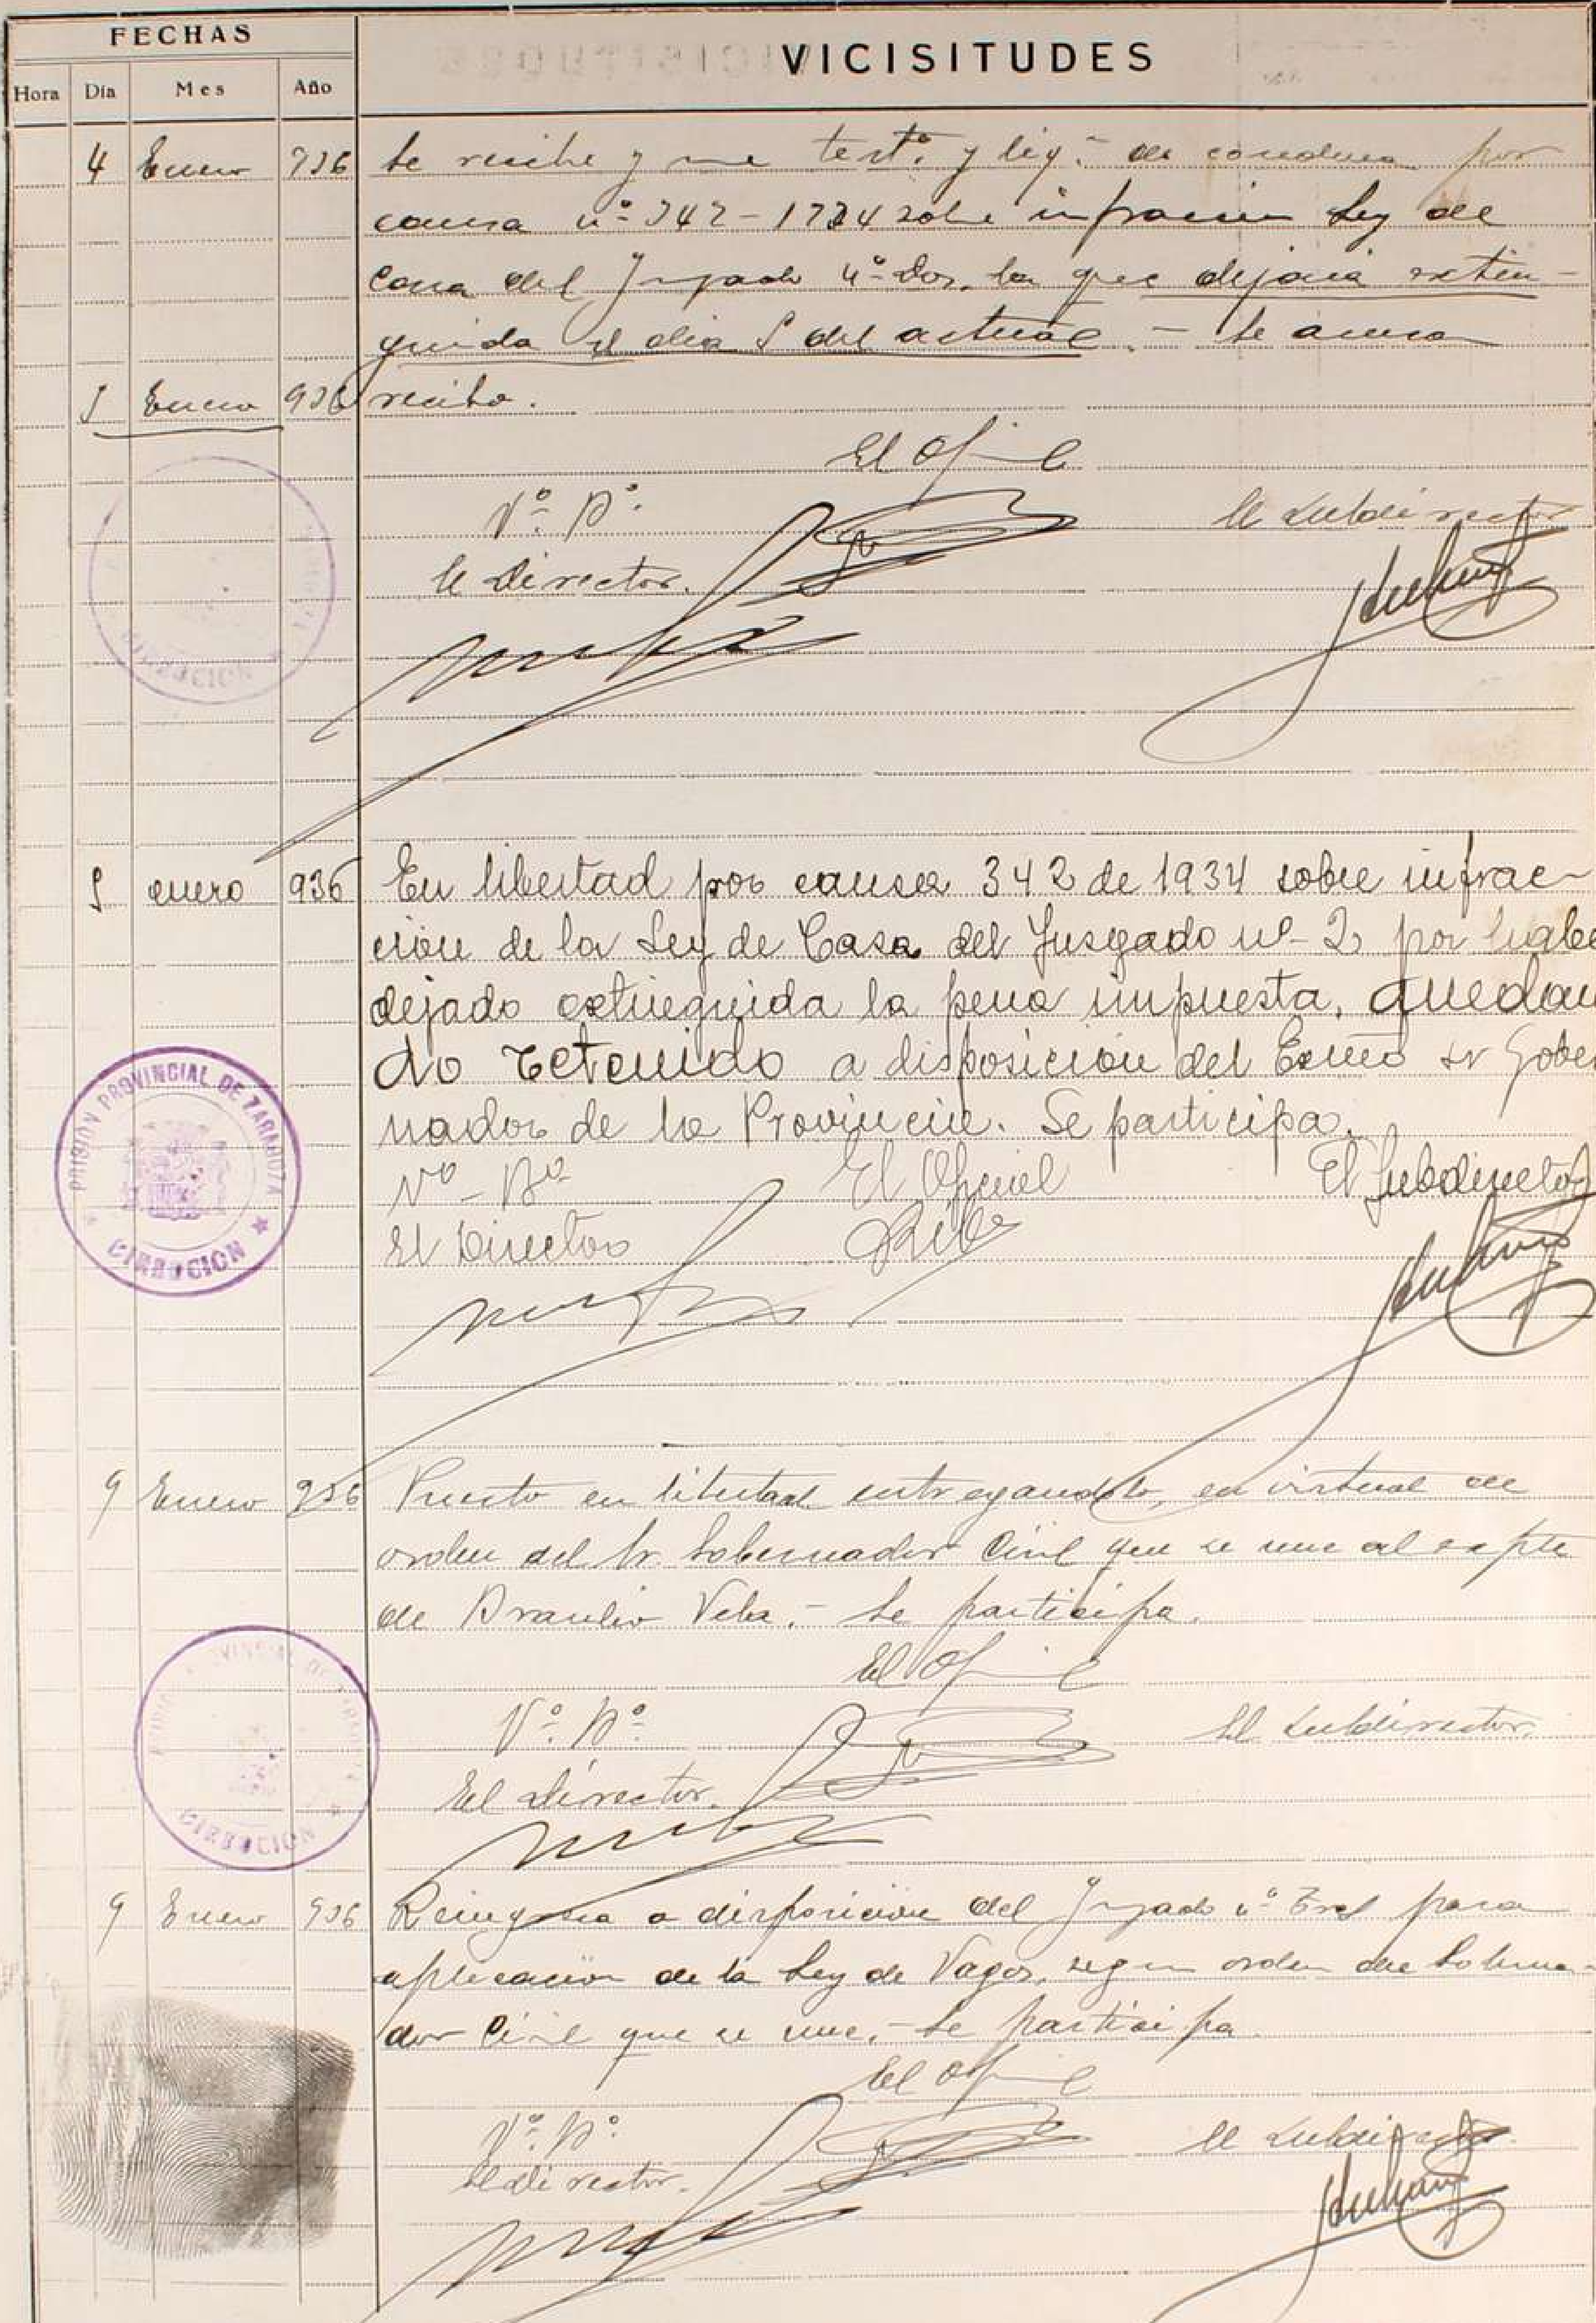 FECHAS
VICISITUDES
Hora Día Mes Año
4 Enero 936 Se recibe y une testº y liqº de condena por
causa nº 342-1934 sobre infracción Ley de
Caza del Juzgado nº Dos, la que dejará extin-
guida el día 5 del actual.- Se acusa
5 Enero 936 recibo.
El Oficial
Vº. Bº. El Subdirector
El Director.
DIRECCION
5 enero 936 En libertad por causa 342 de 1934 sobre infrac-
ción de la Ley de Casa del Jusgado nº- 2 por habe
dejado extinguida la pena impuesta, quedan
do retenido a disposición del Exmo sr Gober
nador de la Provincia. Se participa.
Vº - Bº El Oficial El Subdirector
El Director
PRISION PROVINCIAL DE ZARAGOZA
DIRECCION
9 Enero 936 Puesto en libertad entregandolo, en virtud de
orden del Sr. Gobernador Civil que se une al expte
de Braulio Vela.- Se participa.
El Oficial
Vº. Bº. El Subdirector.
El Director.
DIRECCION
9 Enero 936 Reingresa a disposición del Juzgado nº Tres para
aplicación de la Ley de Vagos, según orden del Goberna-
dor Civil que se une.- Se participa.
El Oficial
Vº. Bº. El Subdirector.
El Director.